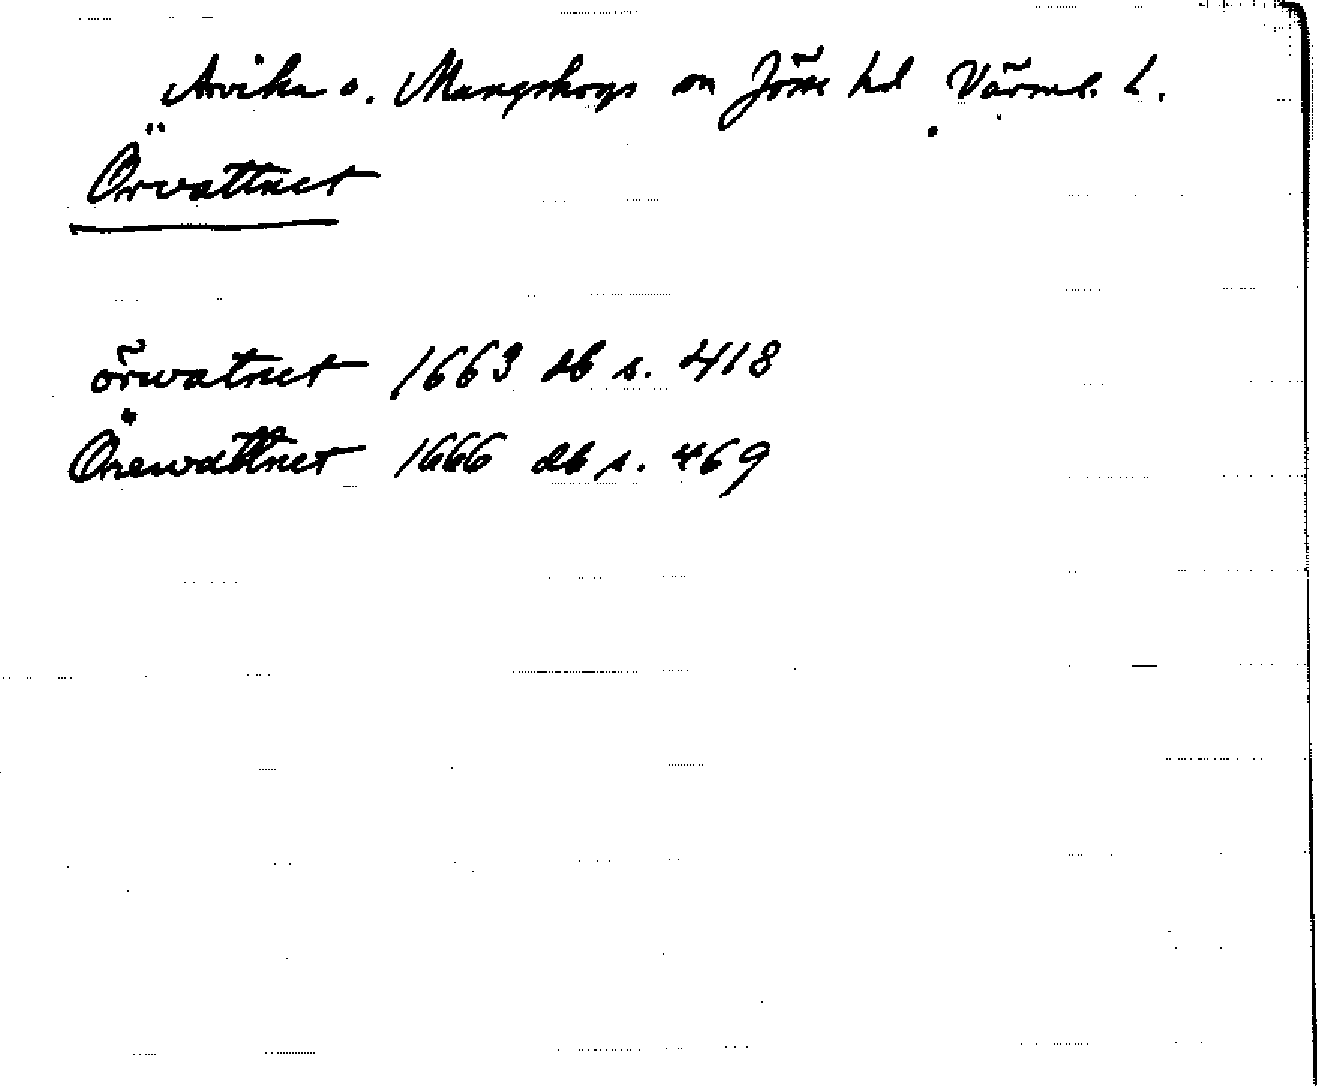 Arvika o. Mangskogs sn Jösse hd Värml. l.
Örvattnet
örwatnet 1663 db s. 418
Örewattnet 1666 db s. 469